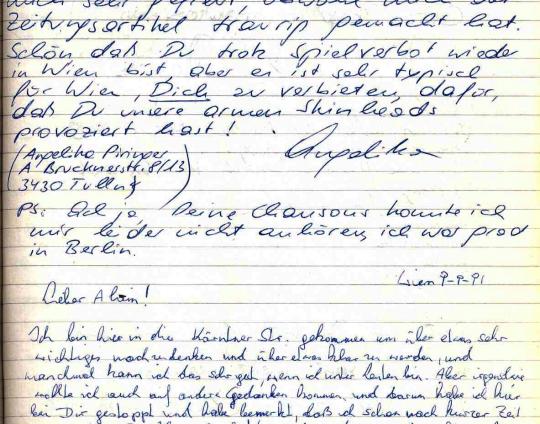 mich sehr gefreut, obwohl mich der
Zeitungsartikel traurig gemacht hat.
Schön daß Du trotz Spielverbot wieder
in Wien bist, aber es ist sehr typisch
für Wien, Dich zu verbieten, dafür,
daß Du unsere armen Skinheads
provoziert hast!
(Angelika Piringer
A Brucknerstr. 8/13
3430 Tulln)
Angelika
PS: Ach ja, Deine Chansons konnte ich
mir leider nicht anhören, ich war grad
in Berlin.
Wien 9-9-91
Lieber Alain!
Ich bin hier in die Kärntner Str. gekommen um über etwas sehr
wichtiges nachzudenken und über etwas klar zu werden, und
manchmal kann ich das sehr gut, wenn ich unter Leuten bin. Aber irgendwie
wollte ich auch auf andere Gedanken kommen, und darum habe ich hier
bei Dir gestoppt und habe bemerkt, daß ich schon nach kurzer Zeit